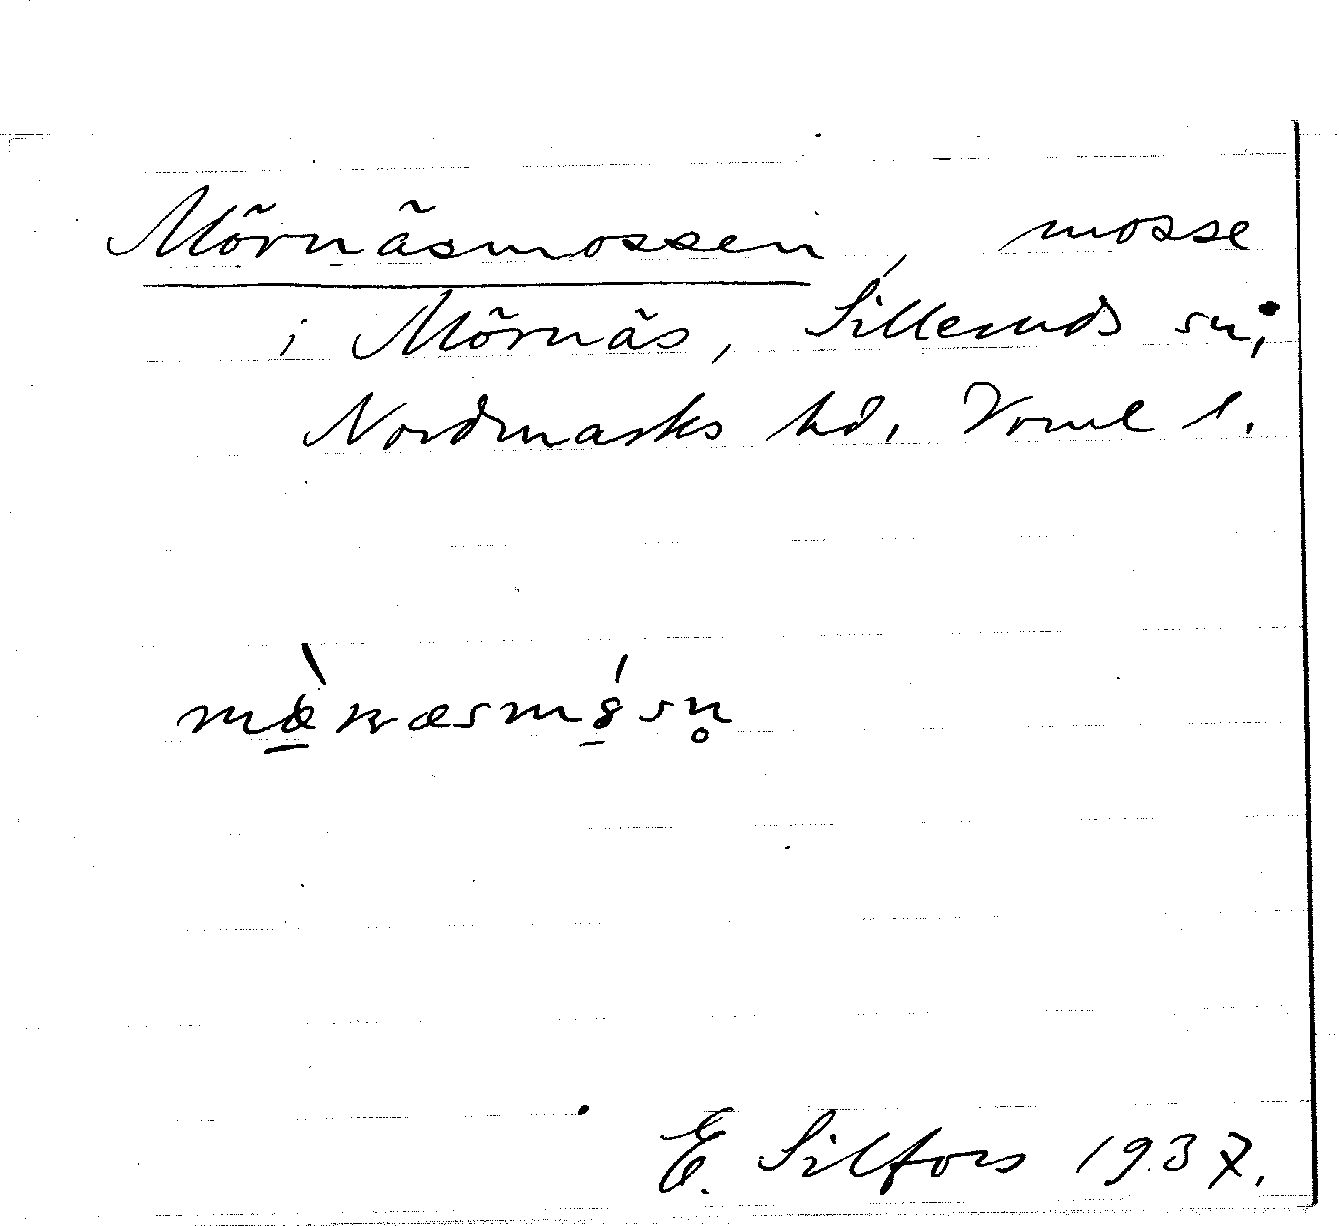 Mörnäsmossen, mosse
i Mörnäs, Silleruds sn;
Nordmarks hd. Vörml l.
E. Silfors 1937.